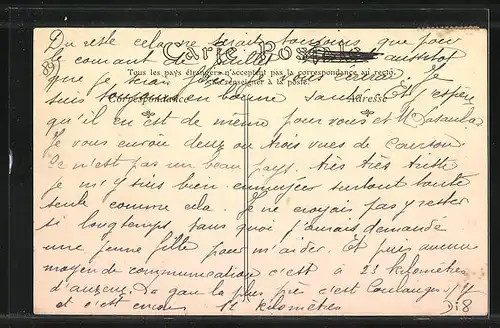 Du reste cela ne serait toujours que pour
le courant de aussitôt
Carte Postale
Tous les pays étrangers n'acceptent pas la correspondance au recto.
(Se renseigner à la poste).
que je Je
Correspondance Adresse
suis toujours en bonne santé. Et j'espère
qu'il en est de même pour vous et M
Je vous envoie deux ou trois vues de
Ce n'est pas un beau pays, très très triste
je m'y suis bien ennuyée surtout toute
seule comme cela. Je ne croyais pas y rester
si longtemps, sans quoi j'aurais demandé
une jeune fille pour m'aider. Et puis aucun
moyen de communication c'est à 23 kilomètres
d'auxerre. La gare la plus près c'est Coulanges s/Y
et c'est encore 12 kilomètres